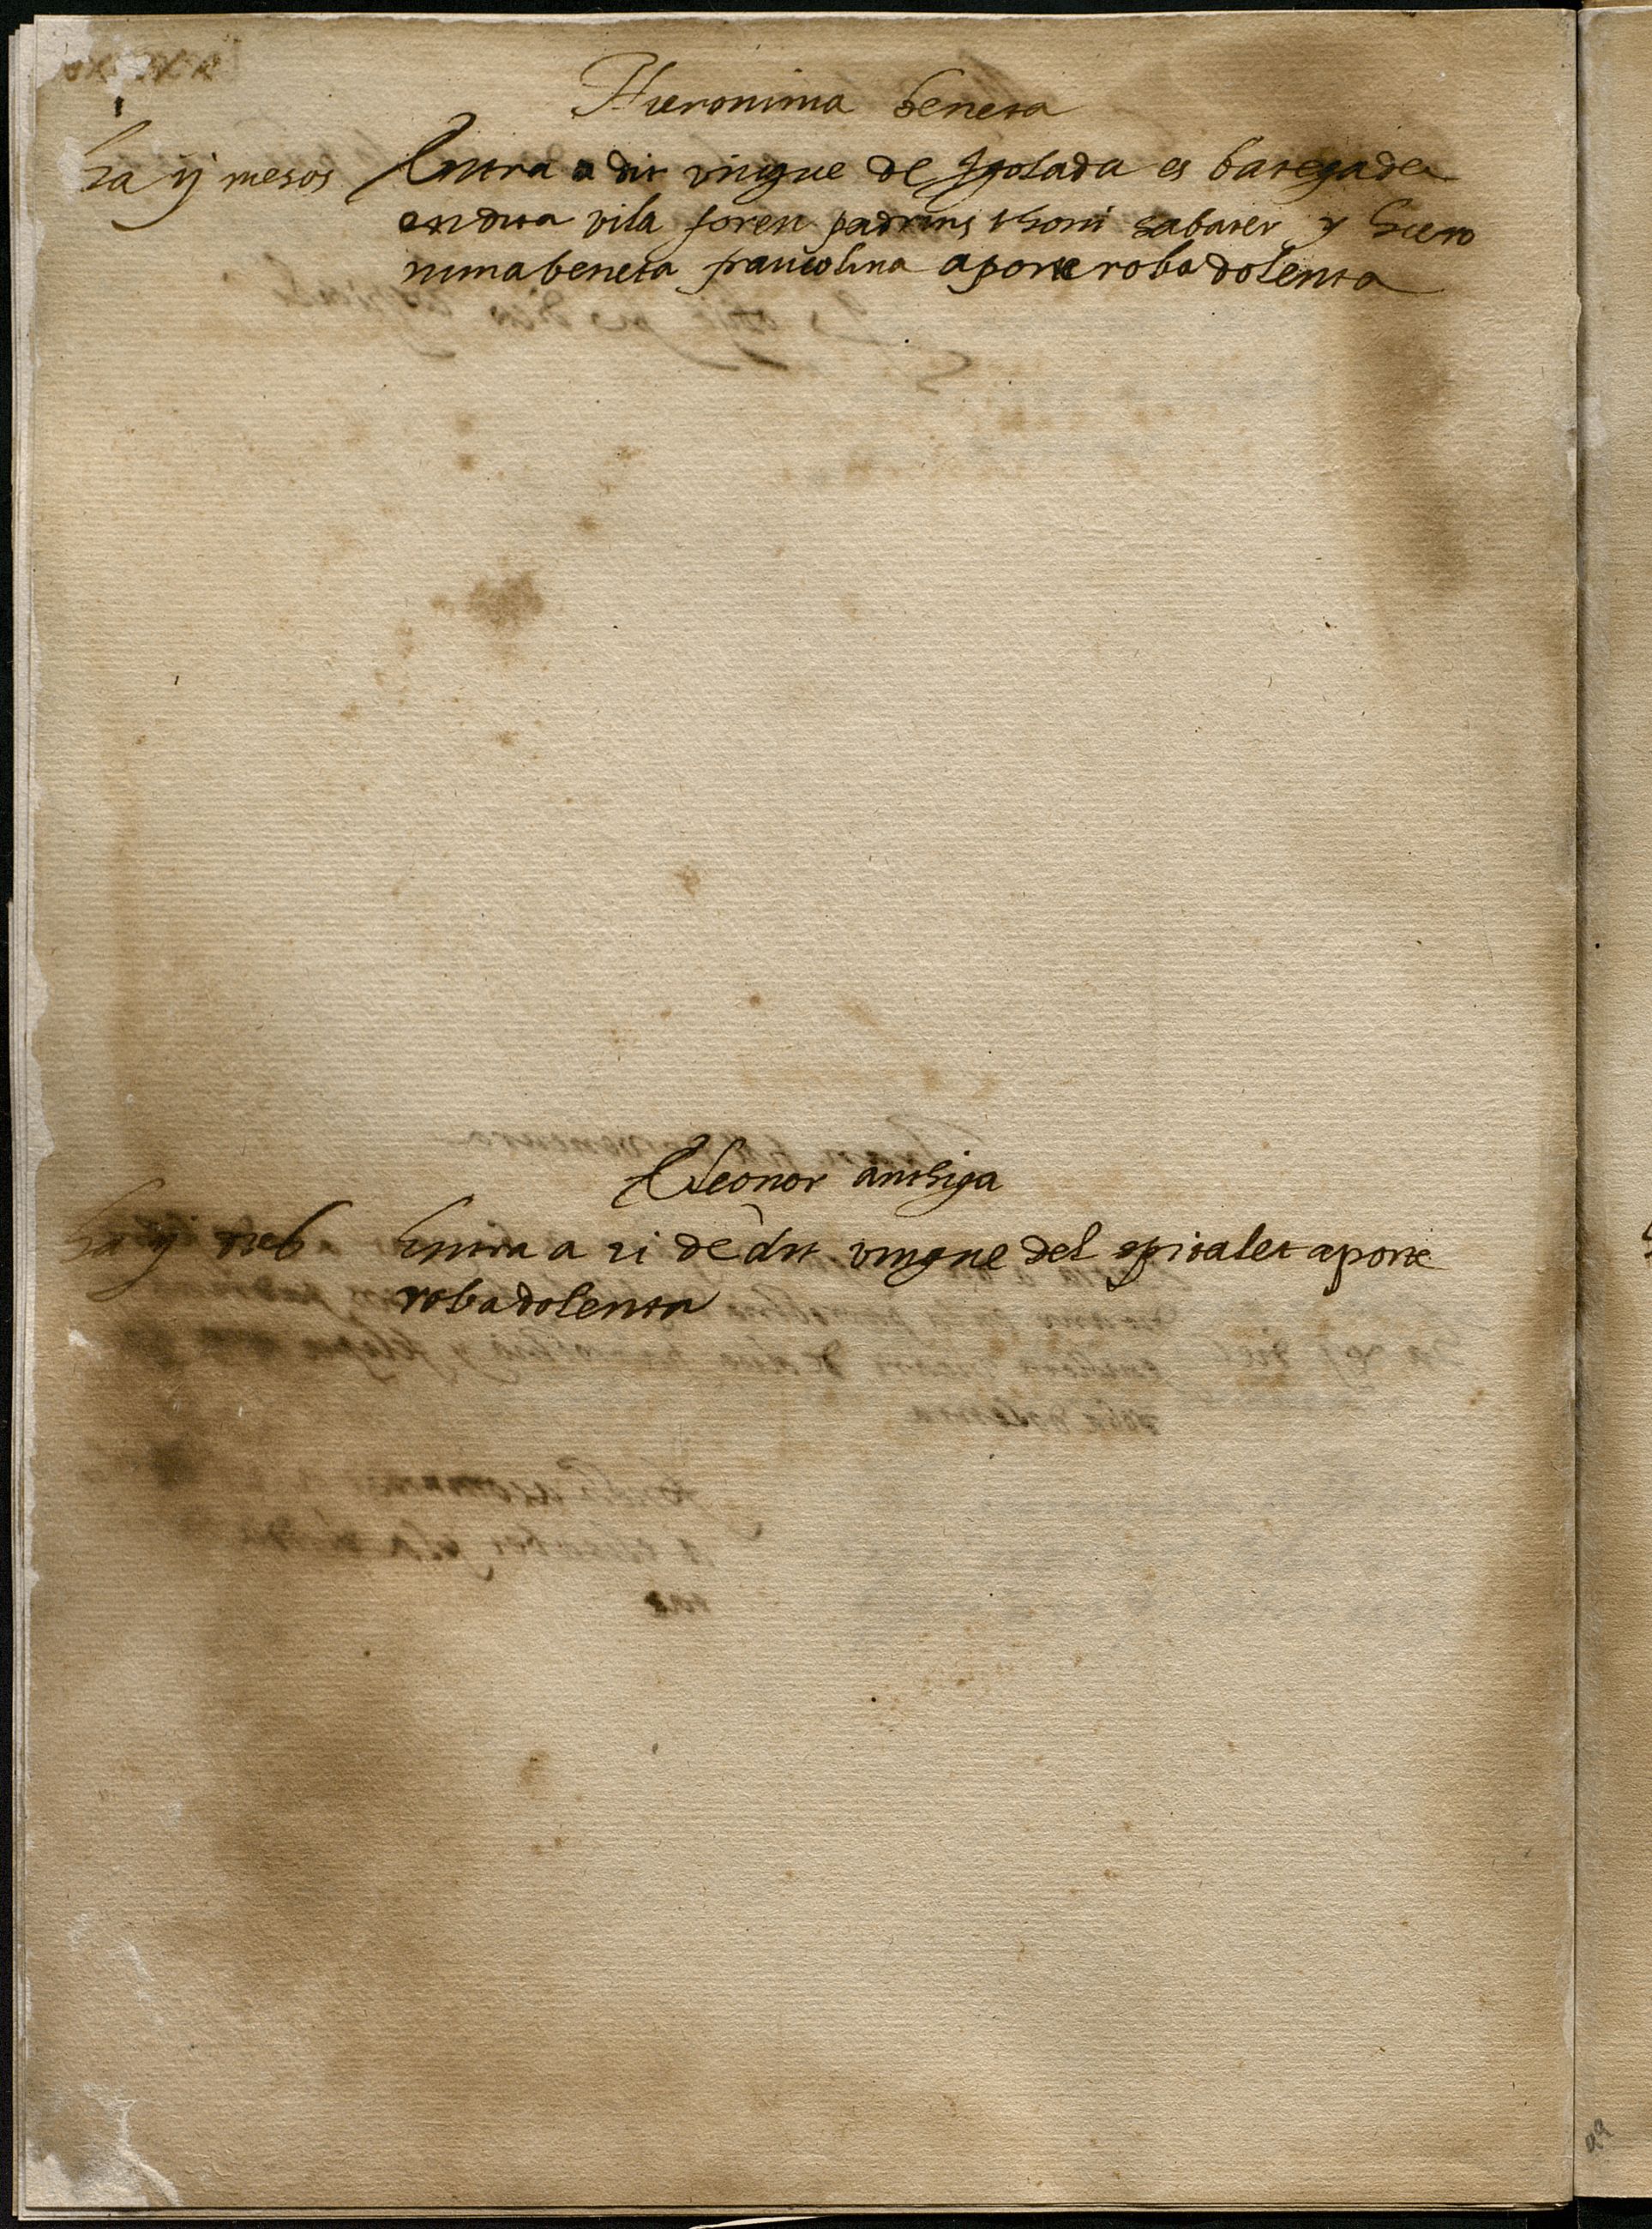 Hieronima beneta
ha ij mesos Entra a dit vingue de Igolada es bategada
en dita vila foren padrins thoni sabater y hiero
nima beneta francolina aporte roba dolenta
Eleonor anthiga
ha ij Entra a 21 de dit vingue del spitalet aporte
roba dolenta